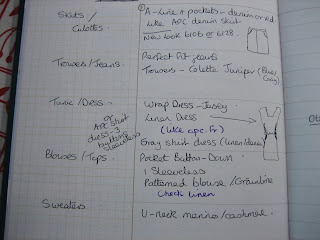 Skirts /
Culottes
① A-Line & pockets - denim or red
like APC denim skirt
New Look 6106 or 6128.
Trousers/Jeans
Perfect Fit jeans
Trousers - Colette Juniper (Blue/
Gray)
Tunic/Dress.
or
APC Shirt
dress - 3
buttons
sleeveless
Wrap Dress - Jersey
Linen Dress
(like apc.fr)
Gray shirt dress (linen/denim)
Blouses/Tops
Pocket Button-Down
1 Sleeveless
Patterned blouse/Grainline
Check linen
Sweaters
U-neck merino/cashmere.